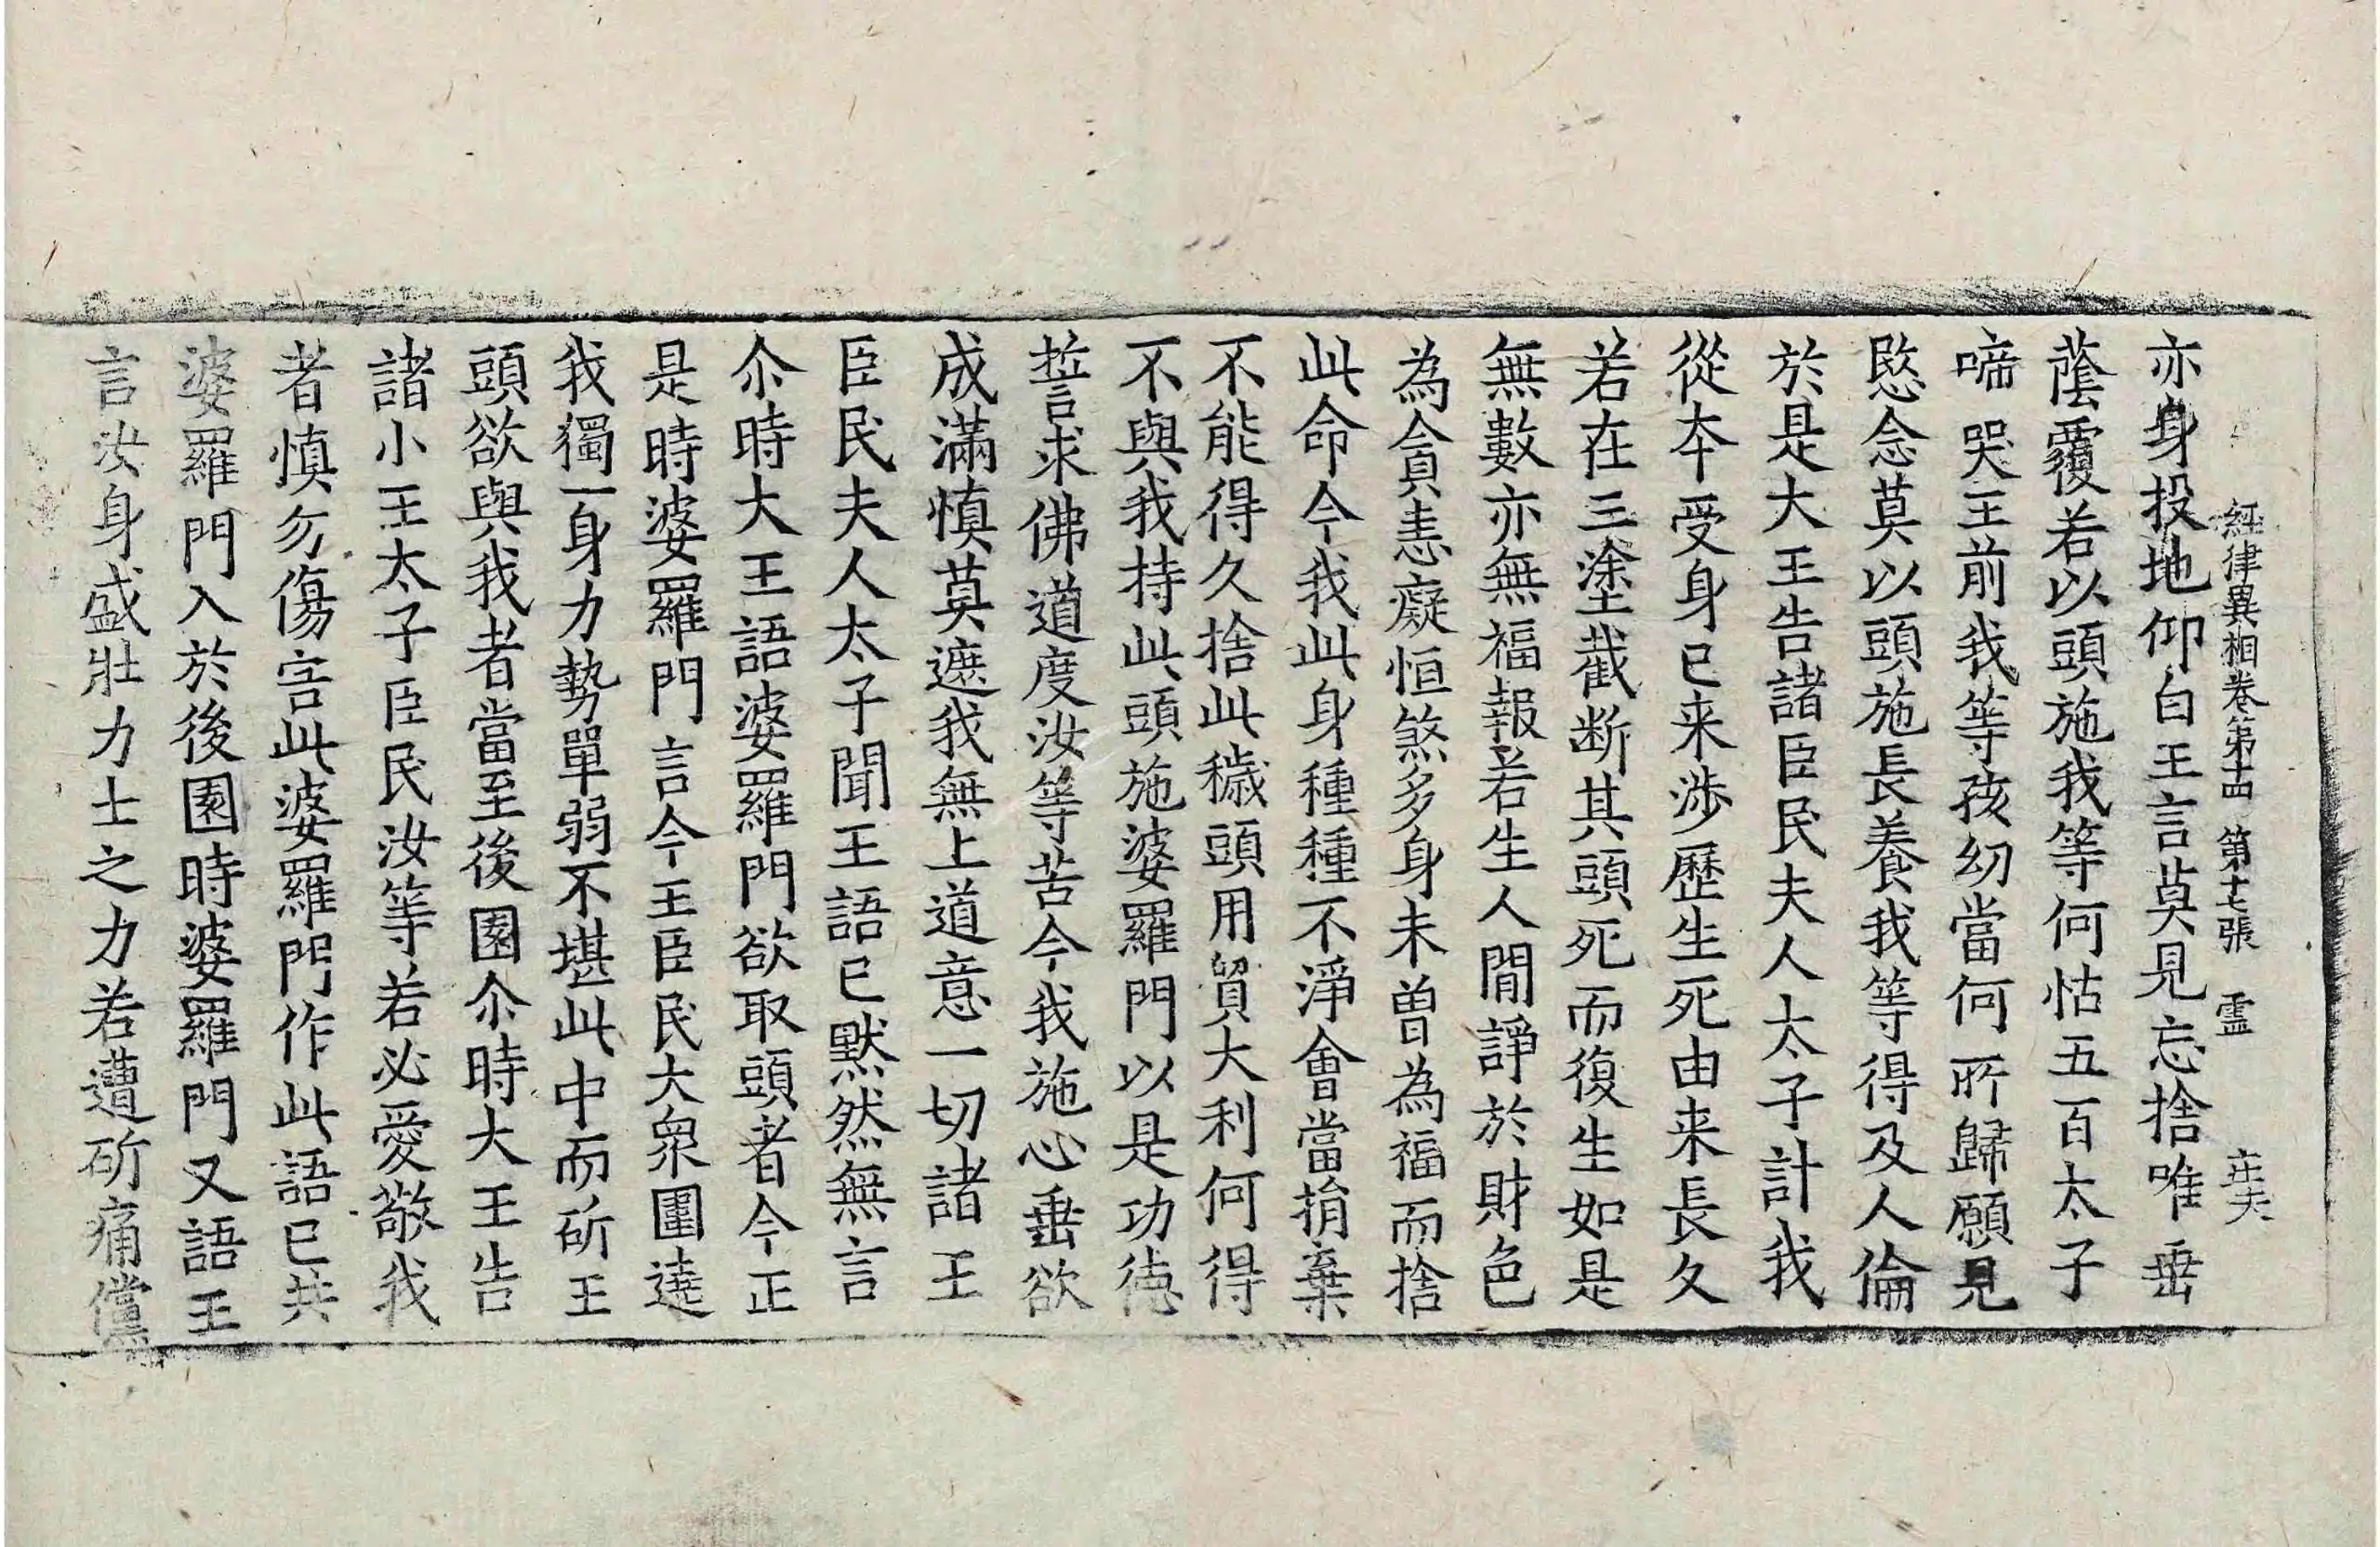 經律異相卷第十四 第十七張 靈
亦身投地仰白王言莫見忘捨唯垂
蔭覆若以頭施我等何怙五百太子
啼哭王前我等孩幼當何所歸願見
愍念莫以頭施長養我等得及人倫
於是大王告諸臣民夫人太子計我
從夲受身已来涉歷生死由来長久
若在三塗截断其頭死而復生如是
無數亦無福報若生人間諍於財色
為貪恚癡恒煞多身未曽為福而捨
此命今我此身種種不淨會當捐棄
不能得久捨此穢頭用貿大利何得
不與我持此頭施婆羅門以是功徳
誓求佛道度汝等苦今我施心垂欲
成滿慎莫遮我無上道意一切諸王
臣民夫人太子聞王語已默然無言
尒時大王語婆羅門欲取頭者今正
是時婆羅門言今王臣民大衆圍遶
我獨一身力勢單弱不堪此中而斫王
頭欲與我者當至後園尒時大王告
諸小王太子臣民汝等若必愛敬我
者慎勿傷害此婆羅門作此語已共
婆羅門入於後園時婆羅門又語王
言汝身盛壯力士之力若遭斫痛儻